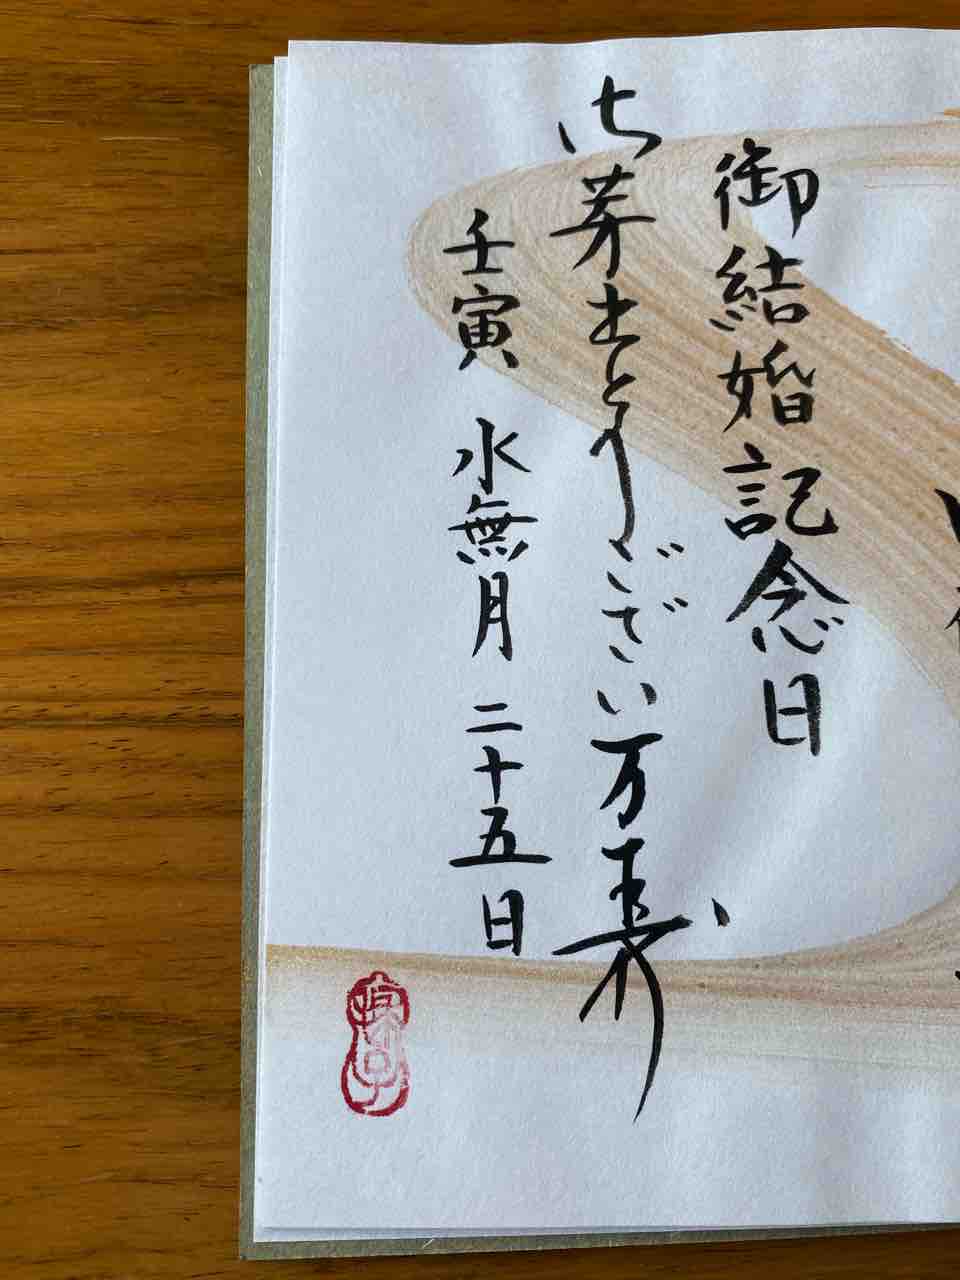 御結婚記念日
御芽出とうござい万寿
壬寅 水無月 二十五日